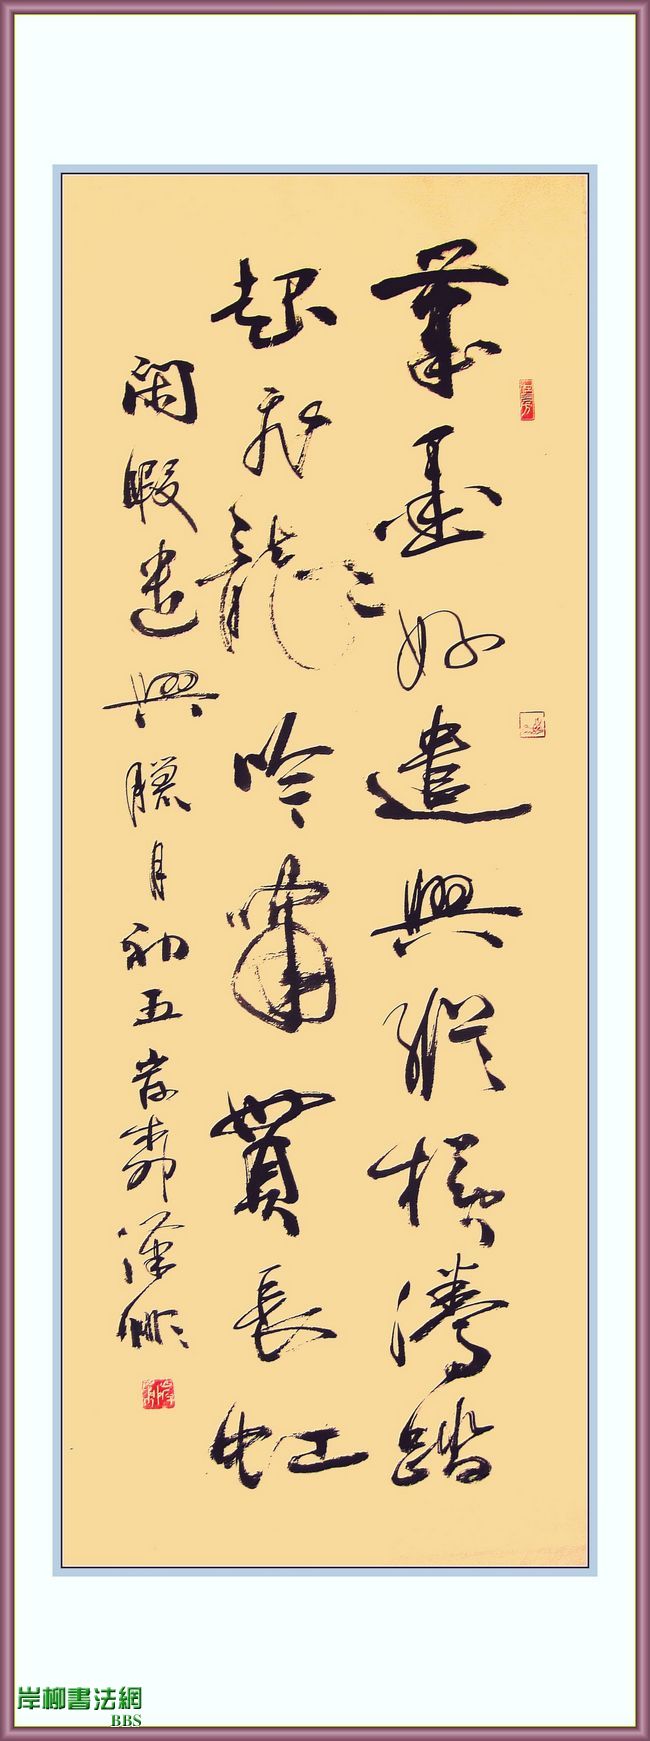 筆墨好遣興縱橫騰踏
起飛龍〻吟嘯貫長虹
閑暇遣興臘月初五岸柳
岸柳書法網
BBS